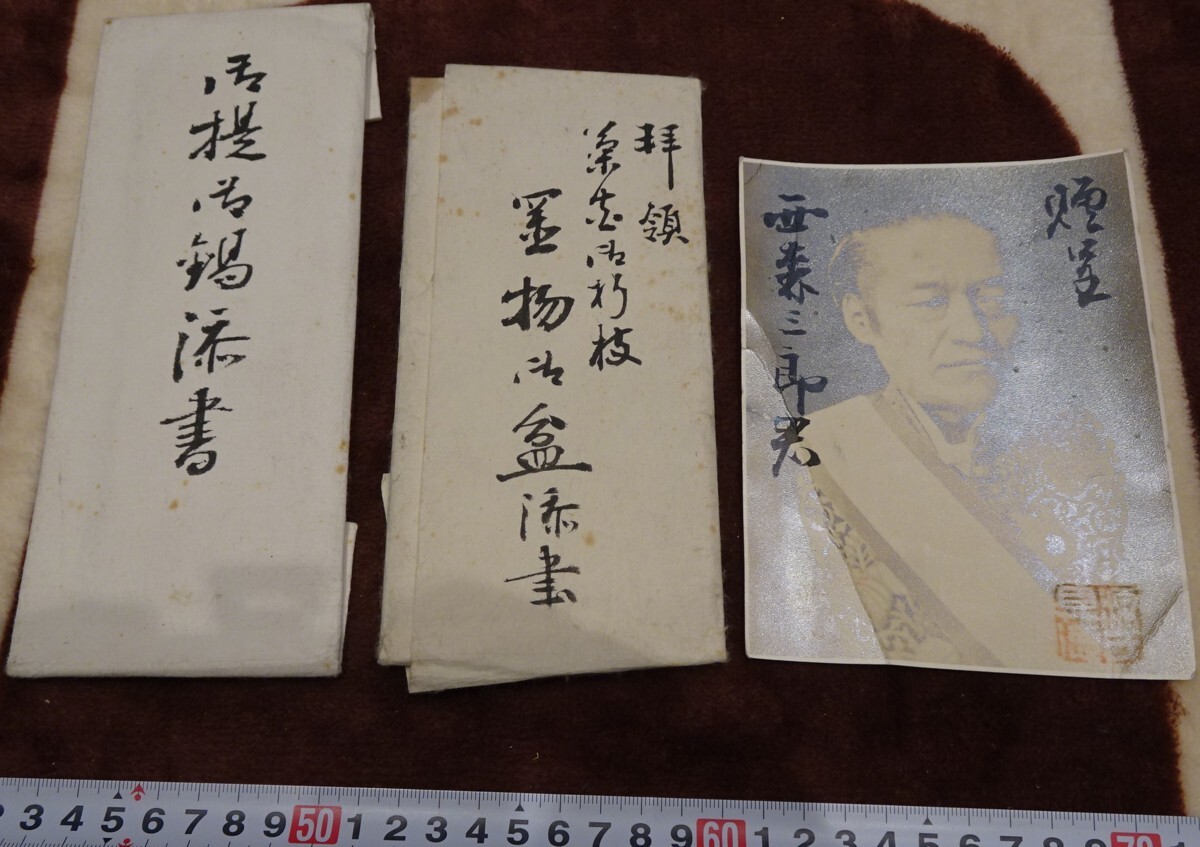 御提御錫添書
拝領
御折枝
物御盆添書
贈呈
西三郎君
3 4 5 6 7 8 9 50 1 2 3 4 5 6 7 8 9 60 1 2 3 4 5 6 7 8 9 70